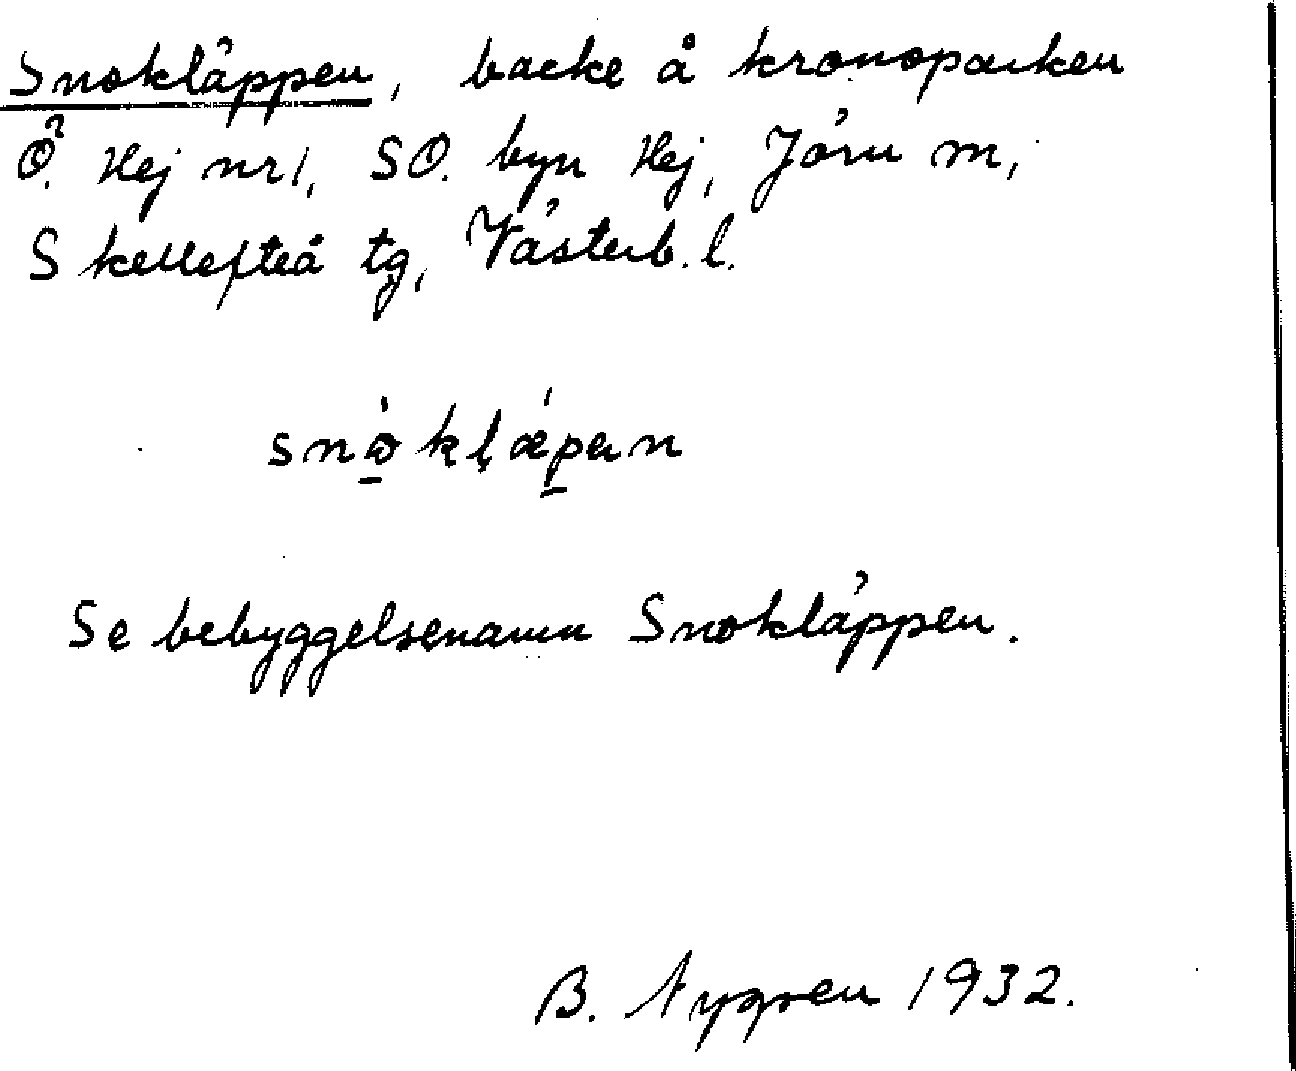 Snokläppen, backe å kronoparken
Ö. Hej nr 1, SO. byn Hej, Jörn m,
Skellefteå tg, Västerb. l.
snòkḷǽpen
Se bebyggelsenamn Snokläppen.
B. Nygren 1932.